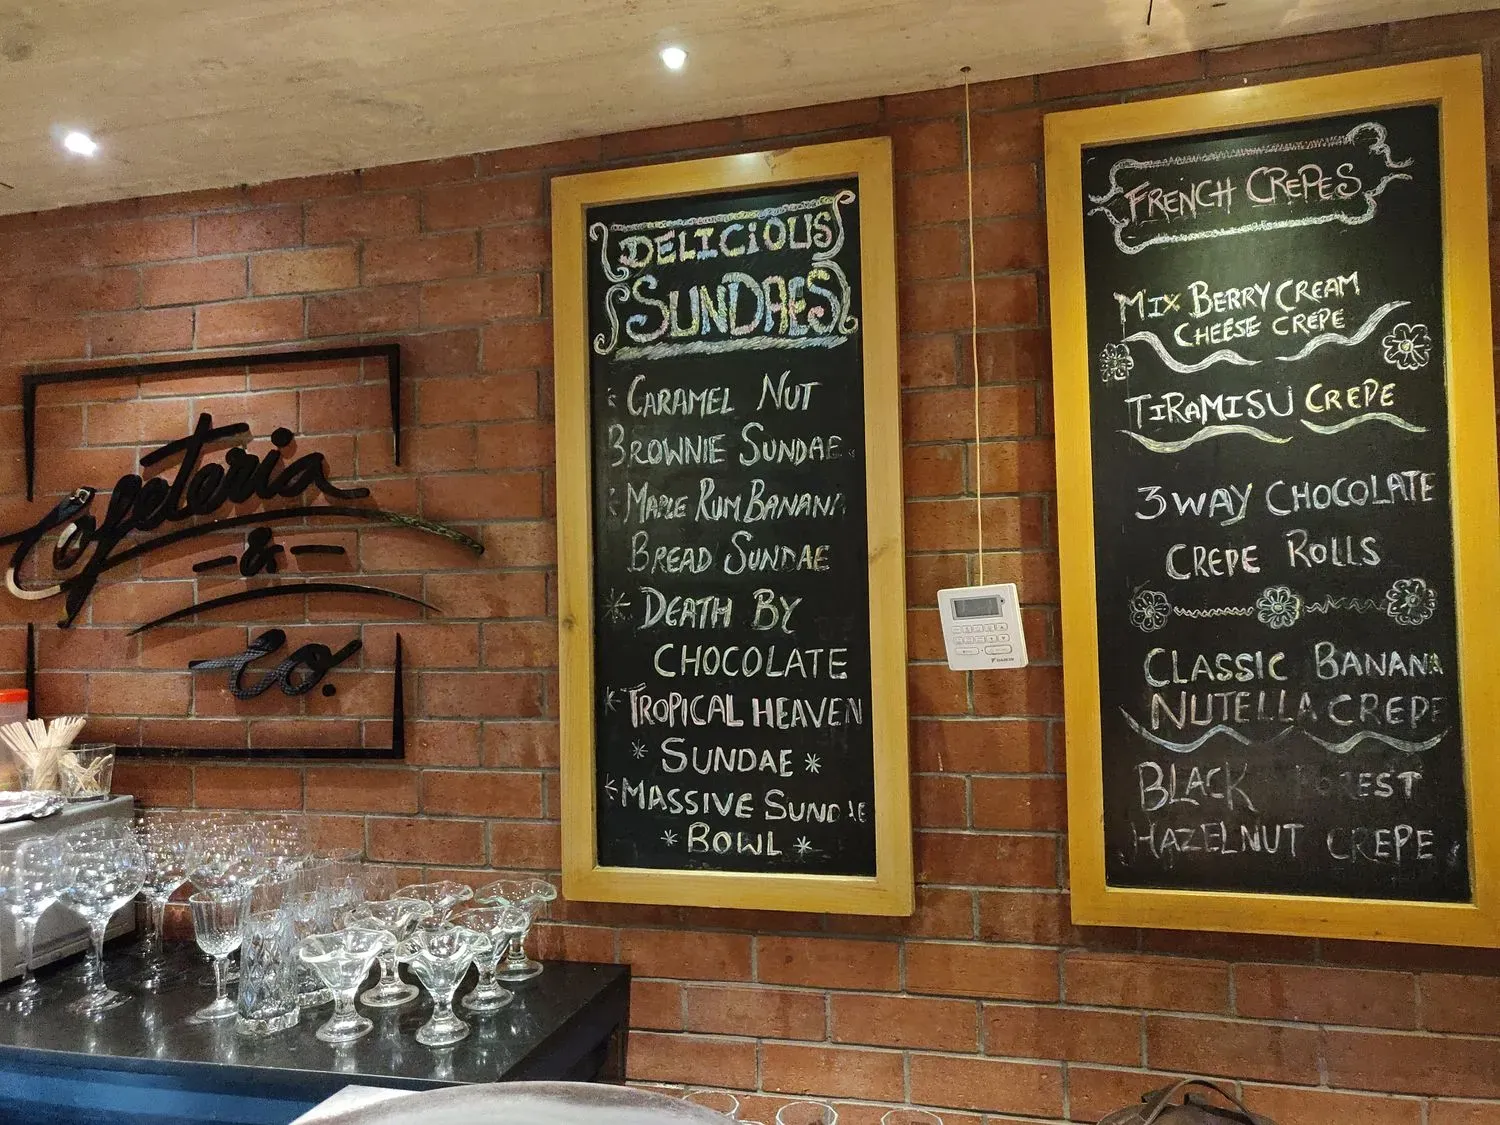 Cafeteria
&
Co.
DELICIOUS
SUNDAES
* CARAMEL NUT
BROWNIE SUNDAE
* MAPLE RUM BANANA
BREAD SUNDAE
* DEATH BY
CHOCOLATE
* TROPICAL HEAVEN
* SUNDAE *
* MASSIVE SUNDAE
* BOWL *
DAIKIN
FRENCH CREPES
MIX BERRY CREAM
CHEESE CREPE
TIRAMISU CREPE
3 WAY CHOCOLATE
CREPE ROLLS
CLASSIC BANANA
NUTELLA CREPE
BLACK FOREST
HAZELNUT CREPE